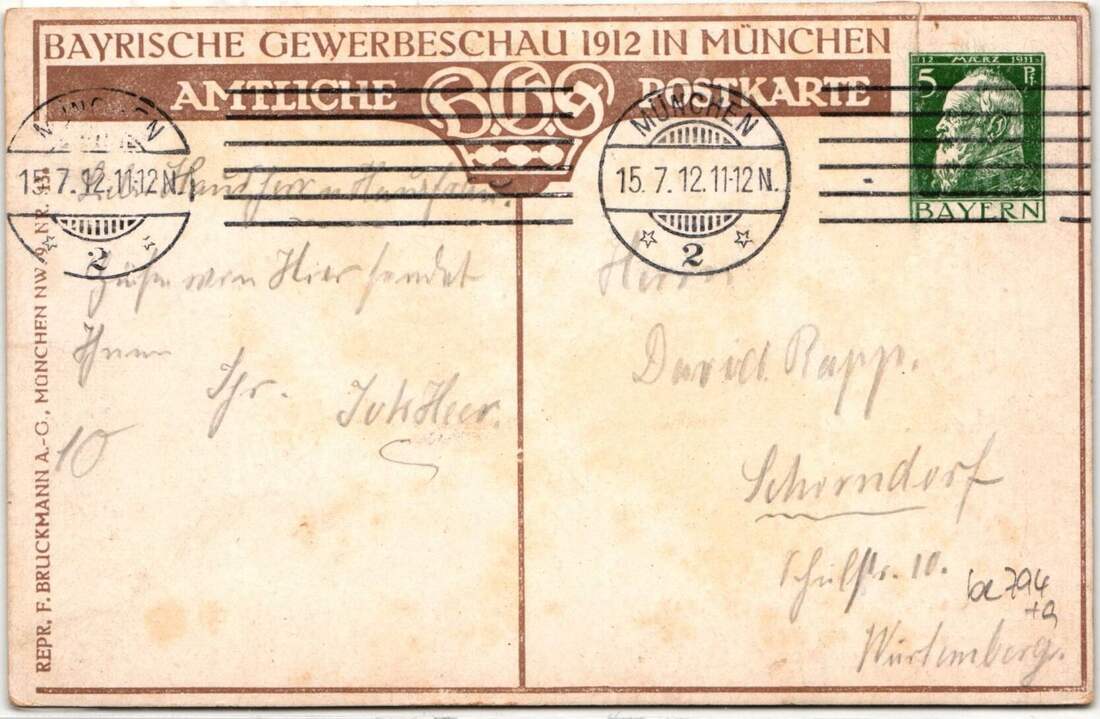 BAYRISCHE GEWERBESCHAU 1912 IN MÜNCHEN
AMTLICHE POSTKARTE
12 MÆRZ 1911
5 Pf
BAYERN
MÜNCHEN
15.7.12.11-12N.
2
MÜNCHEN
15.7.12.11-12N.
2
Hausherr u Hausfrau.
von Hier sendet
Ihnen
Ihr.
10
Herrn
David Rapp.
Schorndorf
Schulstr. 10.
Würtemberg.
REPR. F. BRUCKMANN A.-G., MÜNCHEN NW 9. NR.